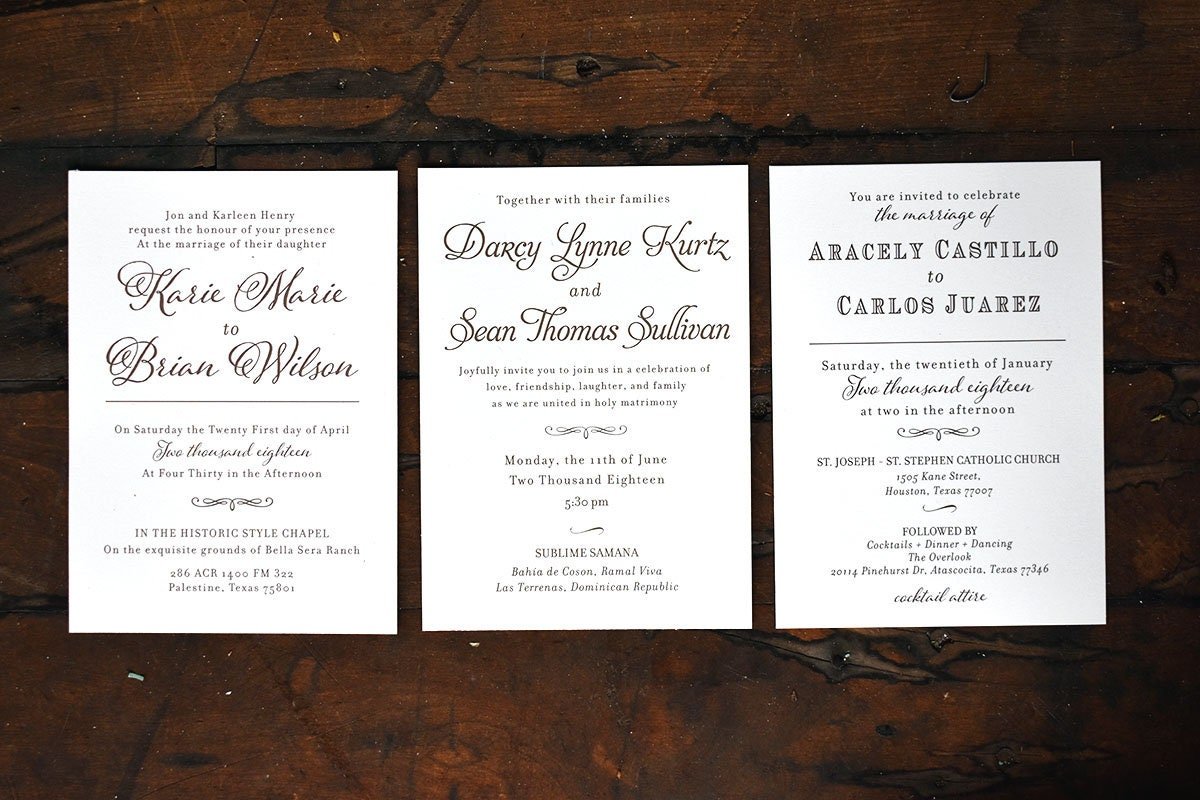 Jon and Karleen Henry
request the honour of your presence
At the marriage of their daughter
Karie Marie
to
Brian Wilson
On Saturday the Twenty First day of April
Two thousand eighteen
At Four Thirty in the Afternoon
IN THE HISTORIC STYLE CHAPEL
On the exquisite grounds of Bella Sera Ranch
286 ACR 1400 FM 322
Palestine, Texas 75801
Together with their families
Darcy Lynne Kurtz
and
Sean Thomas Sullivan
Joyfully invite you to join us in a celebration of
love, friendship, laughter, and family
as we are united in holy matrimony
Monday, the 11th of June
Two Thousand Eighteen
5:30 pm
SUBLIME SAMANA
Bahía de Coson, Ramal Viva
Las Terrenas, Dominican Republic
You are invited to celebrate
the marriage of
ARACELY CASTILLO
to
CARLOS JUAREZ
Saturday, the twentieth of January
Two thousand eighteen
at two in the afternoon
ST. JOSEPH - ST. STEPHEN CATHOLIC CHURCH
1505 Kane Street,
Houston, Texas 77007
FOLLOWED BY
Cocktails + Dinner + Dancing
The Overlook
20114 Pinehurst Dr, Atascocita, Texas 77346
cocktail attire